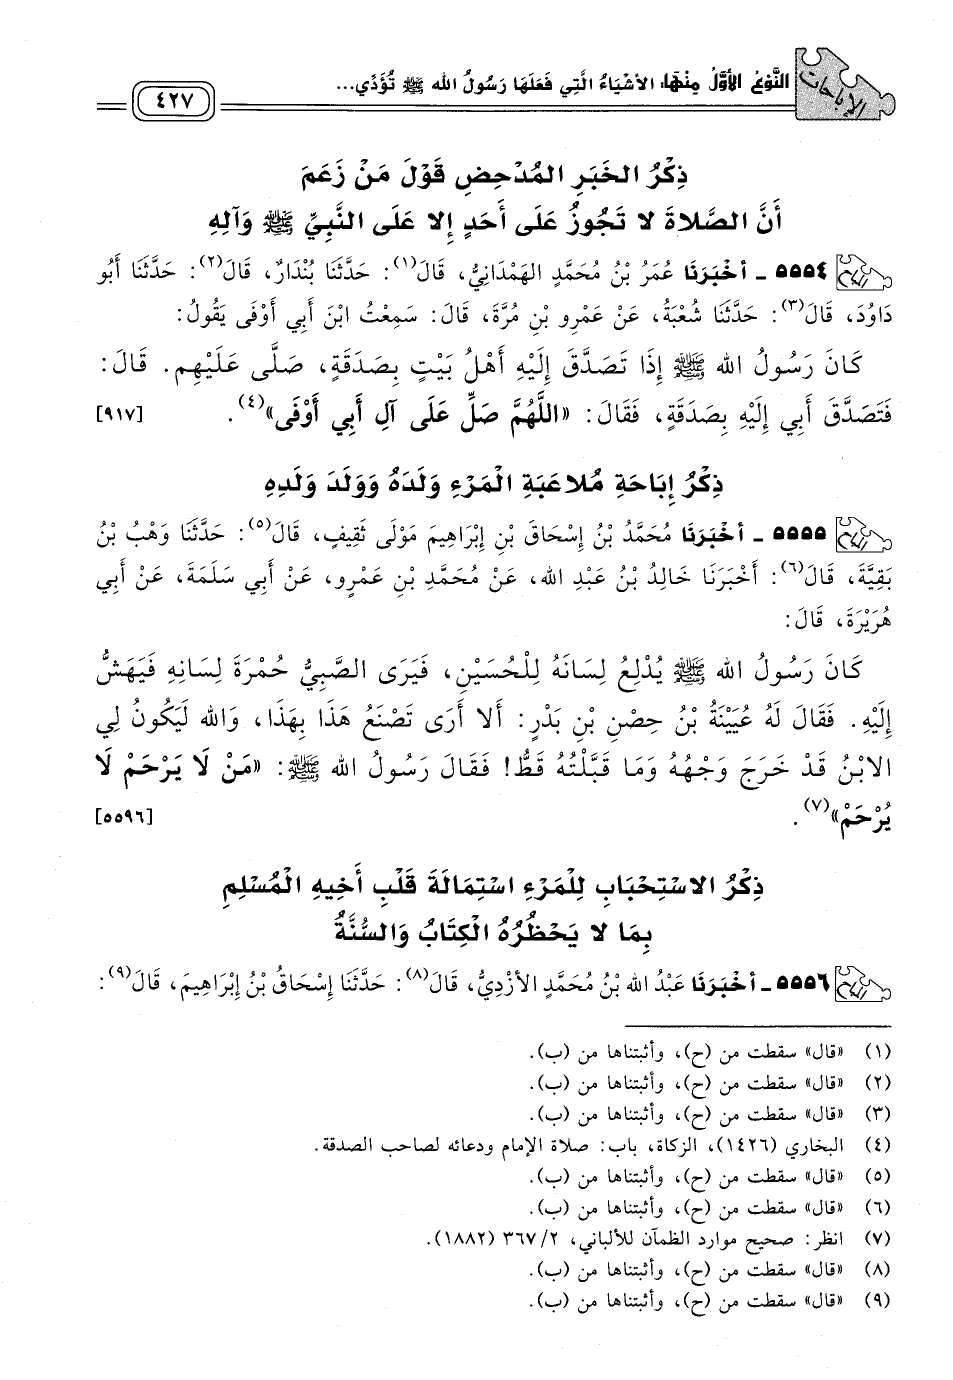 الإباحات
النَّوْعُ الأَوَّلُ مِنْهَا: الأَشْيَاءُ الَّتِي فَعَلَهَا رَسُولُ الله ﷺ تُؤَدِّي...
٤٢٧
ذِكْرُ الخَبَرِ المُدْحِضِ قَوْلَ مَنْ زَعَمَ
أَنَّ الصَّلاةَ لا تَجُوزُ عَلَى أَحَدٍ إِلا عَلَى النَّبِيِّ ﷺ وَآلِهِ
٥٥٥٤ ـ أَخْبَرَنَا عُمَرُ بْنُ مُحَمَّدٍ الهَمْدَانِيُّ، قَالَ(١): حَدَّثَنَا بُنْدَارٌ، قَالَ(٢): حَدَّثَنَا أَبُو
دَاوُدَ، قَالَ(٣): حَدَّثَنَا شُعْبَةُ، عَنْ عَمْرِو بْنِ مُرَّةَ، قَالَ: سَمِعْتُ ابْنَ أَبِي أَوْفَى يَقُولُ:
كَانَ رَسُولُ الله ﷺ إِذَا تَصَدَّقَ إِلَيْهِ أَهْلُ بَيْتٍ بِصَدَقَةٍ، صَلَّى عَلَيْهِم. قَالَ:
فَتَصَدَّقَ أَبِي إِلَيْهِ بِصَدَقَةٍ، فَقَالَ: «اللَّهُمَّ صَلِّ عَلَى آلِ أَبِي أَوْفَى»(٤). [٩١٧]
ذِكْرُ إِبَاحَةِ مُلاعَبَةِ الْمَرْءِ وَلَدَهُ وَوَلَدَ وَلَدِهِ
٥٥٥٥ ـ أَخْبَرَنَا مُحَمَّدُ بْنُ إِسْحَاقَ بْنِ إِبْرَاهِيمَ مَوْلَى ثَقِيفٍ، قَالَ(٥): حَدَّثَنَا وَهْبُ بْنُ
بَقِيَّةَ، قَالَ(٦): أَخْبَرَنَا خَالِدُ بْنُ عَبْدِ الله، عَنْ مُحَمَّدِ بْنِ عَمْرٍو، عَنْ أَبِي سَلَمَةَ، عَنْ أَبِي
هُرَيْرَةَ، قَالَ:
كَانَ رَسُولُ الله ﷺ يُدْلِعُ لِسَانَهُ لِلْحُسَيْنِ، فَيَرَى الصَّبِيُّ حُمْرَةَ لِسَانِهِ فَيَهَشُّ
إِلَيْهِ. فَقَالَ لَهُ عُيَيْنَةُ بْنُ حِصْنِ بْنِ بَدْرٍ: أَلا أَرَى تَصْنَعُ هَذَا بِهَذَا، وَالله لَيَكُونُ لِي
الابْنُ قَدْ خَرَجَ وَجْهُهُ وَمَا قَبَّلْتُهُ قَطُّ! فَقَالَ رَسُولُ الله ﷺ: «مَنْ لَا يَرْحَمْ لَا
يُرْحَمْ»(٧). [٥٥٩٦]
ذِكْرُ الاسْتِحْبَابِ لِلْمَرْءِ اسْتِمَالَةَ قَلْبِ أَخِيهِ الْمُسْلِمِ
بِمَا لا يَحْظُرُهُ الْكِتَابُ وَالسُّنَّةُ
٥٥٥٦ ـ أَخْبَرَنَا عَبْدُ الله بْنُ مُحَمَّدٍ الأَزْدِيُّ، قَالَ(٨): حَدَّثَنَا إِسْحَاقُ بْنُ إِبْرَاهِيمَ، قَالَ(٩):
(١) «قال» سقطت من (ح)، وأثبتناها من (ب).
(٢) «قال» سقطت من (ح)، وأثبتناها من (ب).
(٣) «قال» سقطت من (ح)، وأثبتناها من (ب).
(٤) البخاري (١٤٢٦)، الزكاة، باب: صلاة الإمام ودعائه لصاحب الصدقة.
(٥) «قال» سقطت من (ح)، وأثبتناها من (ب).
(٦) «قال» سقطت من (ح)، وأثبتناها من (ب).
(٧) انظر: صحيح موارد الظمآن للألباني، ٣٦٧/٢ (١٨٨٢).
(٨) «قال» سقطت من (ح)، وأثبتناها من (ب).
(٩) «قال» سقطت من (ح)، وأثبتناها من (ب).